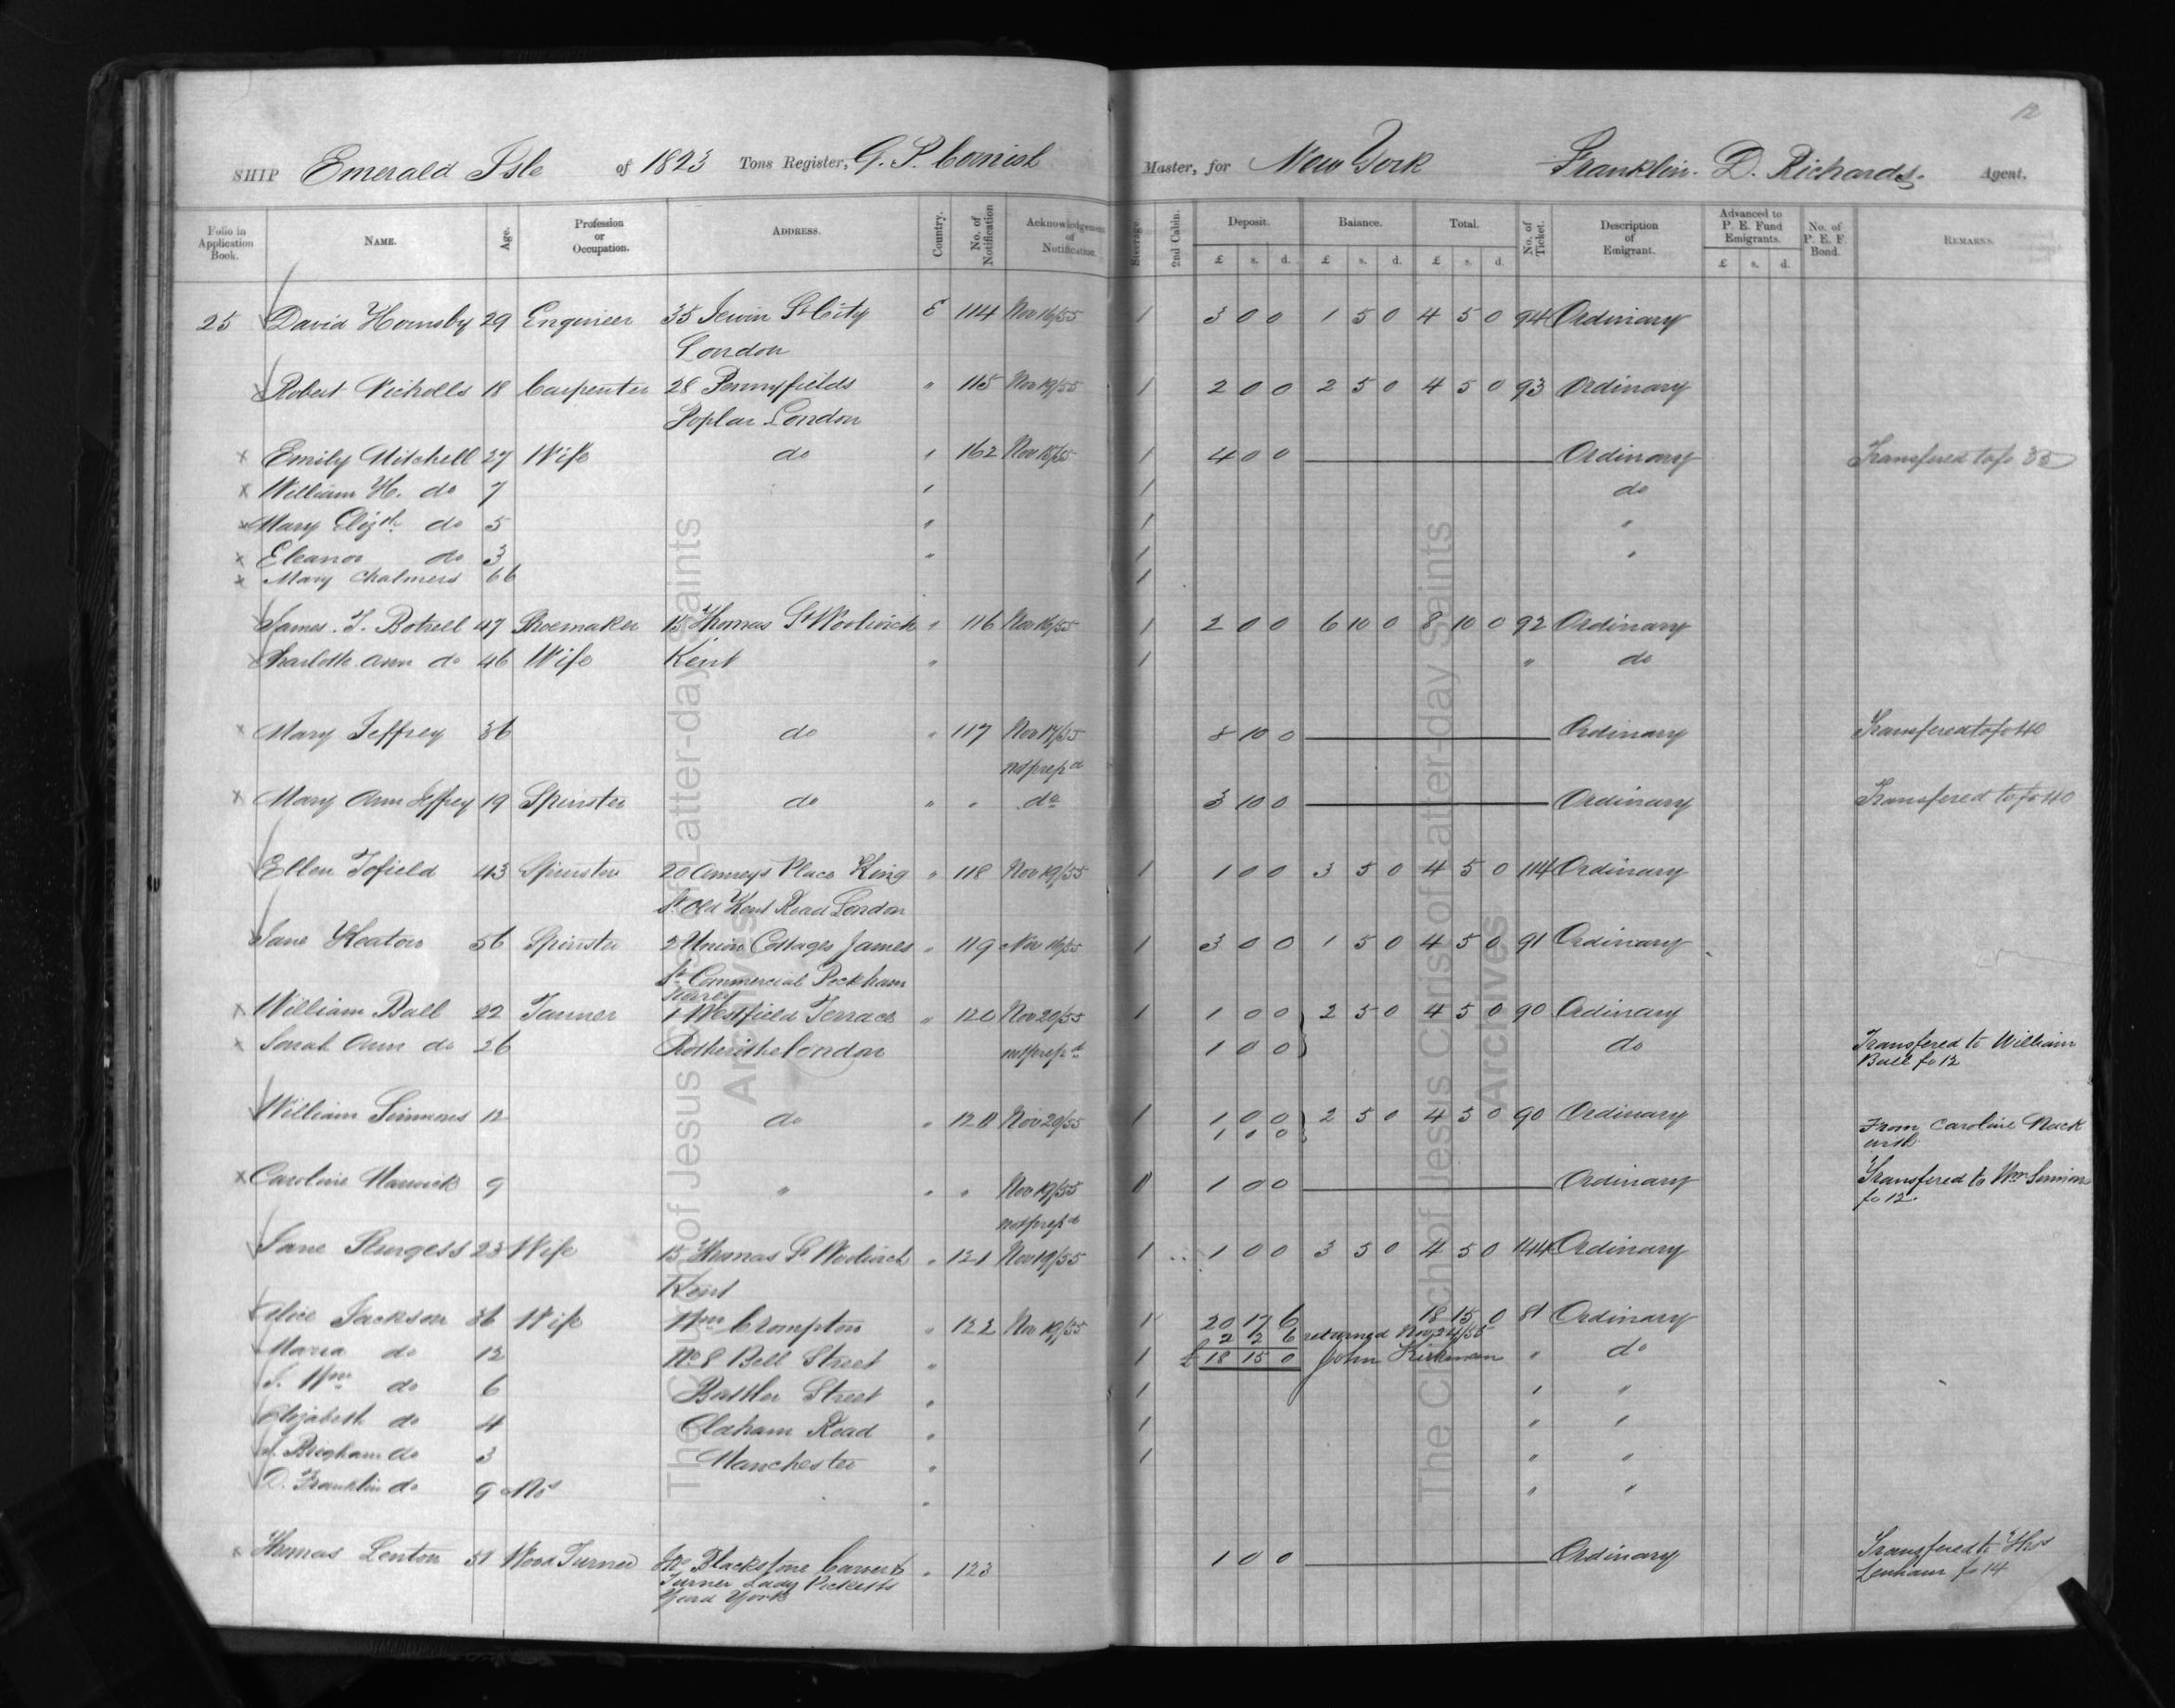 12
SHIP Emerald Isle of 1823 Tons Register, G. P. Cornish Master, for New York Franklin. D. Richards. Agent.
Folio in Application Book. NAME. Age. Profession or Occupation. ADDRESS. Country. No. of Notification Acknowledgement of Notification. Steerage. 2nd Cabin. Deposit. Balance. Total. No. of Ticket. Description of Emigrant. Advanced to P. E. Fund Emigrants. No. of P. E. F. Bond. REMARKS.
£ s. d. £ s. d. £ s. d. £ s. d.
25 David Hornsby 29 Engineer 35 Jewin St City E 114 Nov 16/55 1 3 0 0 1 5 0 4 5 0 94 Ordinary
London
Robert Nicholls 18 Carpenter 28 Pennyfields " 115 Nov 19/55 1 2 0 0 2 5 0 4 5 0 93 Ordinary
Poplar London
x Emily Mitchell 27 Wife do " 162 Nov 15/55 1 4 0 0 Ordinary Transfered to fo 35
x William H. do 7 " 1 do
x Mary Elizth do 5 " 1 "
x Eleanor do 3 " 1 "
x Mary Chalmers 66 1
James. T. Botrell 47 Shoemaker 15 Thomas St Woolwich " 116 Nov 16/55 1 2 0 0 6 10 0 8 10 0 92 Ordinary
Charlotte Ann do 46 Wife Kent " 1 " do
x Mary Jeffrey 36 do " 117 Nov 17/55 8 10 0 Ordinary Transfered to fo 40
not prepd
x Mary Ann Jeffrey 19 Spinster do " " do 3 10 0 Ordinary Transfered to fo 40
Ellen Tofield 43 Spinster 20 Anneys Place King " 118 Nov 19/55 1 1 0 0 3 5 0 4 5 0 114 Ordinary
St Old Kent Road London
Jane Keaton 56 Spinster 2 Union Cottages James " 119 Nov 16/55 1 3 0 0 1 5 0 4 5 0 91 Ordinary
St Commercial Peckham
Surrey
x William Ball 22 Tanner 1 Westfield Terrace " 120 Nov 20/55 1 1 0 0 2 5 0 4 5 0 90 Ordinary
x Sarah Ann do 26 Rotherithe London not prepd 1 0 0 do Transfered to William
Ball fo 12
William Simmons 12 do " 120 Nov 20/55 1 1 0 0 2 5 0 4 5 0 90 Ordinary
1 0 0 From Caroline
x Caroline 9 " " " Nov 19/55 1 0 0 Ordinary Transfered to Wm Simmons
fo 12.
not prepd
Jane Sturgess 23 Wife 15 Thomas St Woolwich " 121 Nov 19/55 1 1 0 0 3 5 0 4 5 0 144 Ordinary
Kent
Alice Jackson 36 Wife Wm Crompton " 122 Nov 19/55 1 20 17 6 18 15 0 81 Ordinary
2 2 6 returned Nov 24/55
Maria do 12 No 8 Bell Street " 1 £ 18 15 0 John Kirkman " do
J. Wm do 6 Buttler Street " 1 " "
Elizabeth do 4 Oldham Road " 1 " "
Brigham do 3 Manchester " 1 " "
D. Franklin do 9 Mos " " "
x Thomas Lenton 51 Wood Turner Mr Blackstone Carver & " 123 1 0 0 Ordinary Transfered to Thos
Turner Lady Picketts Lenham fo 14
Yard York
The Church of Jesus Christ of Latter-day Saints
Archives
The Church of Jesus Christ of Latter-day Saints
Archives